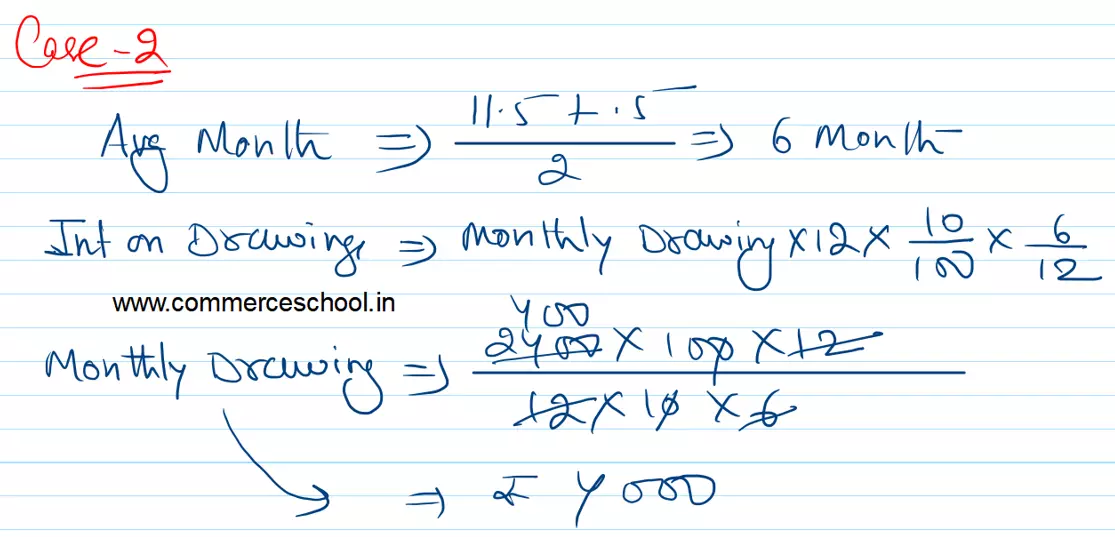 Case-2
Avg Month ⇒ 11.5 + .5 / 2 ⇒ 6 Month
Int on Drawings ⇒ Monthly Drawing × 12 × 10/100 × 6/12
www.commerceschool.in
400
Monthly Drawing ⇒ 2400 × 100 × 12 / 12 × 10 × 6
⇒ ₹ 4000